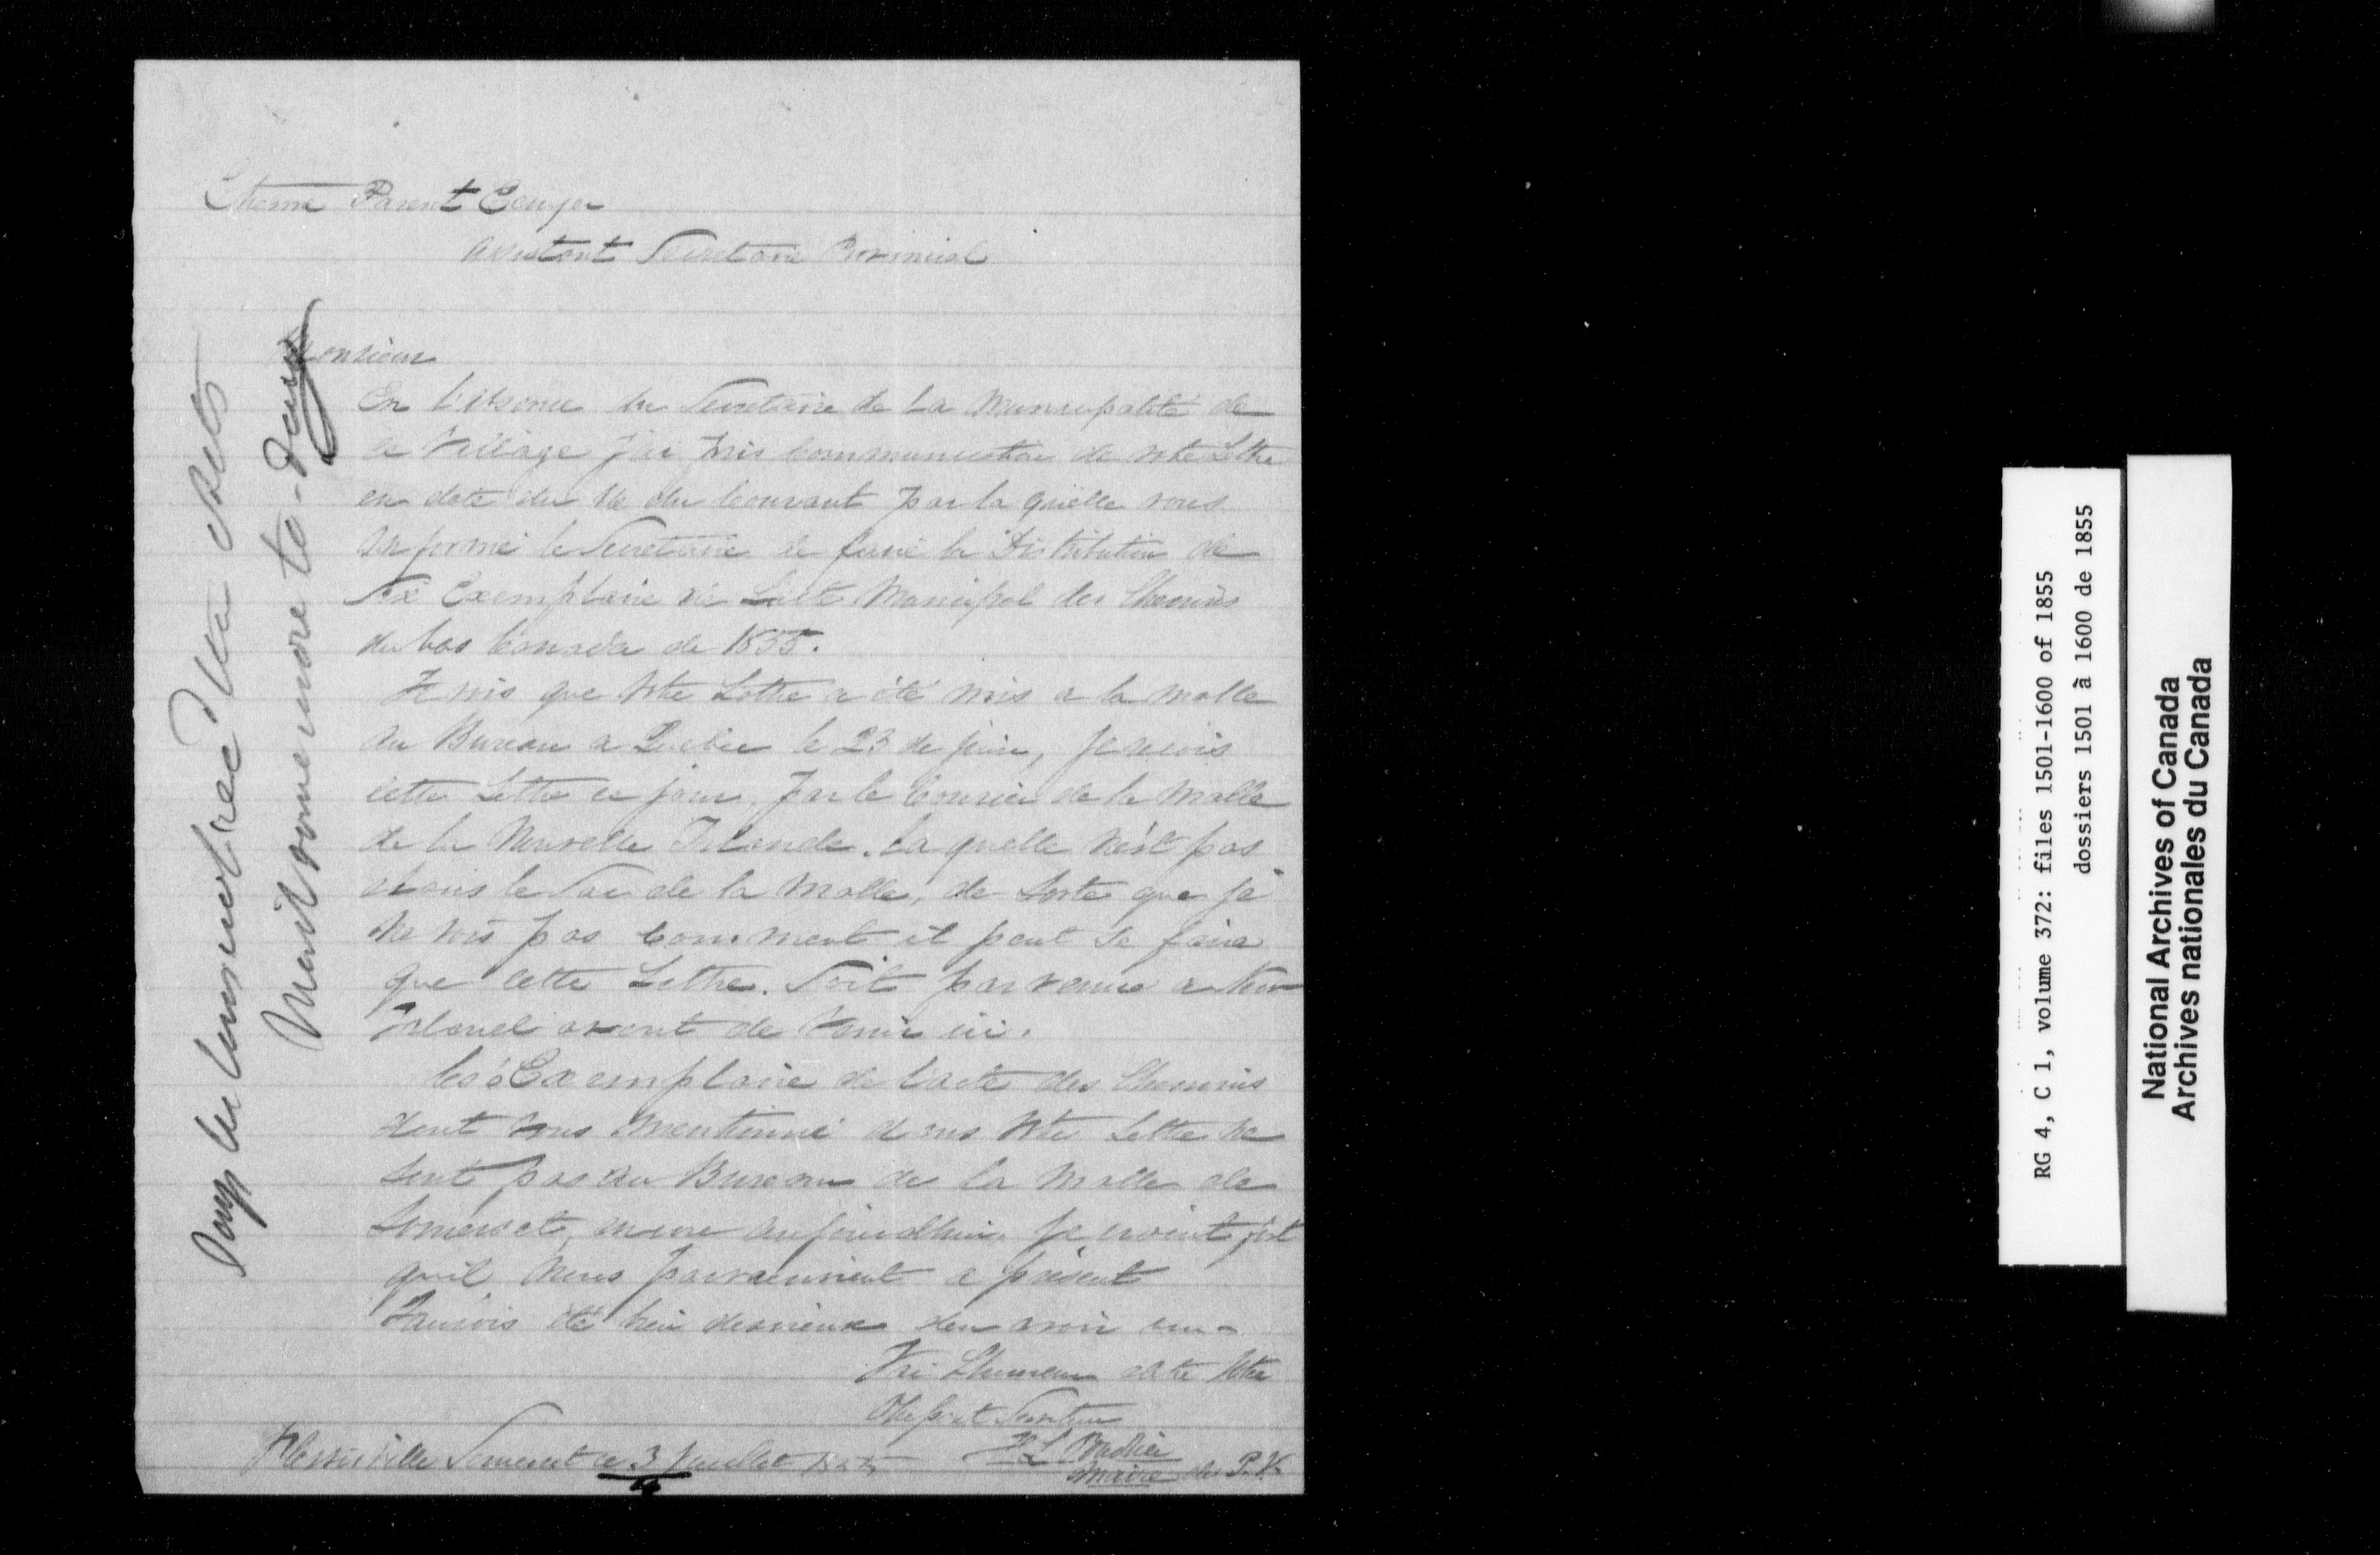 Etienne Parent Ecuyer
Assistant Secretaire Provincial
Monsieur
En l'absence du Secretaire de La Municipalité de
ce Village j'ai pris communication de votre Lettre
en date du du Courant par la quelle vous
informé le Secretaire de faire la Distribution de
Six Exemplaire de Lacte Municipal des Chemins
du bas Canada de 1855.
Je vois que votre Lettre a été mis a la malle
au Bureau a Quebec le 23 de juin, je reçois
cette Lettre ce jour, par le Courier de la Malle
de la Nouvelle Irlande. La quelle n'est pas
dans le Sac de la Malle, de Sorte que je
ne vois pas comment il peut se faire
que cette Lettre. Soit parvenue a New
Irland avant de venir ici.
Ces 6 Exemplaire de l'acte des Chemins
dont vous mentionné dans votre Lettre ne
sont pas au Bureau de la Malle de
Somerset, aujourdhui. je
quil nous parviennent a présent
J'aurois été bien desirieux den avoir un
L'honneur detre Votre
Obeisant Serviteur
Plessisville Somerset ce 3 Juillet 1855
Maire du P.V.
Municipal Acts
sent some more to-day
RG 4, C 1, volume 372: files 1501-1600 of 1855
dossiers 1501 à 1600 de 1855
National Archives of Canada
Archives nationales du Canada